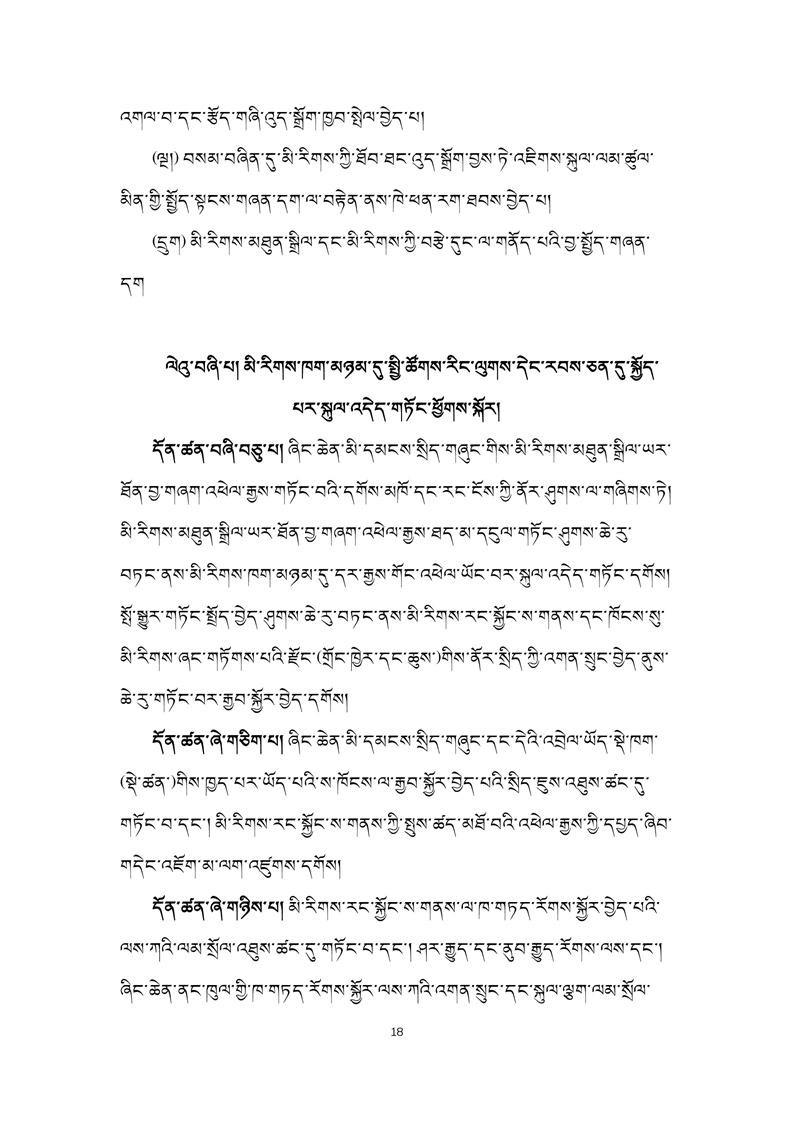 འགལ་བ་དང་རྩོད་གཞི་འུད་སྒྲོག་ཁྱབ་སྤེལ་བྱེད་པ།
(ལྔ།) བསམ་བཞིན་དུ་མི་རིགས་ཀྱི་ཐོབ་ཐང་འུད་སྒྲོག་བྱས་ཏེ་འཇིགས་སྐུལ་ལམ་ཚུལ་
མིན་གྱི་སྤྱོད་སྟངས་གཞན་དག་ལ་བརྟེན་ནས་ཁེ་ཕན་རག་ཐབས་བྱེད་པ།
(དྲུག) མི་རིགས་མཐུན་སྒྲིལ་དང་མི་རིགས་ཀྱི་བརྩེ་དུང་ལ་གནོད་པའི་བྱ་སྤྱོད་གཞན་
དག
ལེའུ་བཞི་པ། མི་རིགས་ཁག་མཉམ་དུ་སྤྱི་ཚོགས་རིང་ལུགས་དེང་རབས་ཅན་དུ་སྐྱོད་
པར་སྐུལ་འདེད་གཏོང་ཕྱོགས་སྐོར།
དོན་ཚན་བཞི་བཅུ་པ། ཞིང་ཆེན་མི་དམངས་སྲིད་གཞུང་གིས་མི་རིགས་མཐུན་སྒྲིལ་ཡར་
ཐོན་བྱ་གཞག་འཕེལ་རྒྱས་གཏོང་བའི་དགོས་མཁོ་དང་རང་ངོས་ཀྱི་ནོར་ཤུགས་ལ་གཞིགས་ཏེ།
མི་རིགས་མཐུན་སྒྲིལ་ཡར་ཐོན་བྱ་གཞག་འཕེལ་རྒྱས་ཐད་མ་དངུལ་གཏོང་ཤུགས་ཆེ་རུ་
བཏང་ནས་མི་རིགས་ཁག་མཉམ་དུ་དར་རྒྱས་གོང་འཕེལ་ཡོང་བར་སྐུལ་འདེད་གཏོང་དགོས།
སྤོ་སྒྱུར་གཏོང་སྤྲོད་བྱེད་ཤུགས་ཆེ་རུ་བཏང་ནས་མི་རིགས་རང་སྐྱོང་ས་གནས་དང་ཁོངས་སུ་
མི་རིགས་ཞང་གཏོགས་པའི་རྫོང་(གྲོང་ཁྱེར་དང་ཆུས་)གིས་ནོར་སྲིད་ཀྱི་འགན་སྲུང་བྱེད་ནུས་
ཆེ་རུ་གཏོང་བར་རྒྱབ་སྐྱོར་བྱེད་དགོས།
དོན་ཚན་ཞེ་གཅིག་པ། ཞིང་ཆེན་མི་དམངས་སྲིད་གཞུང་དང་དེའི་འབྲེལ་ཡོད་སྡེ་ཁག་
(སྡེ་ཚན་)གིས་ཁྱད་པར་ཡོད་པའི་ས་ཁོངས་ལ་རྒྱབ་སྐྱོར་བྱེད་པའི་སྲིད་ཇུས་འཐུས་ཚང་དུ་
གཏོང་བ་དང་། མི་རིགས་རང་སྐྱོང་ས་གནས་ཀྱི་སྤུས་ཚད་མཐོ་བའི་འཕེལ་རྒྱས་ཀྱི་དཔྱད་ཞིབ་
གདེང་འཇོག་མ་ལག་འཛུགས་དགོས།
དོན་ཚན་ཞེ་གཉིས་པ། མི་རིགས་རང་སྐྱོང་ས་གནས་ལ་ཁ་གཏད་རོགས་སྐྱོར་བྱེད་པའི་
ལས་ཀའི་ལམ་སྲོལ་འཐུས་ཚང་དུ་གཏོང་བ་དང་། ཤར་རྒྱུད་དང་ནུབ་རྒྱུད་རོགས་ལས་དང་།
ཞིང་ཆེན་ནང་ཁུལ་གྱི་ཁ་གཏད་རོགས་སྐྱོར་ལས་ཀའི་འགན་སྲུང་དང་སྐུལ་ལྕག་ལམ་སྲོལ་
18